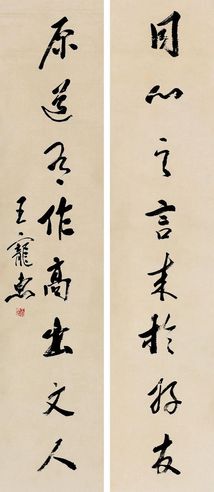 同心之言來於好友
原道作高出文人
王寵惠